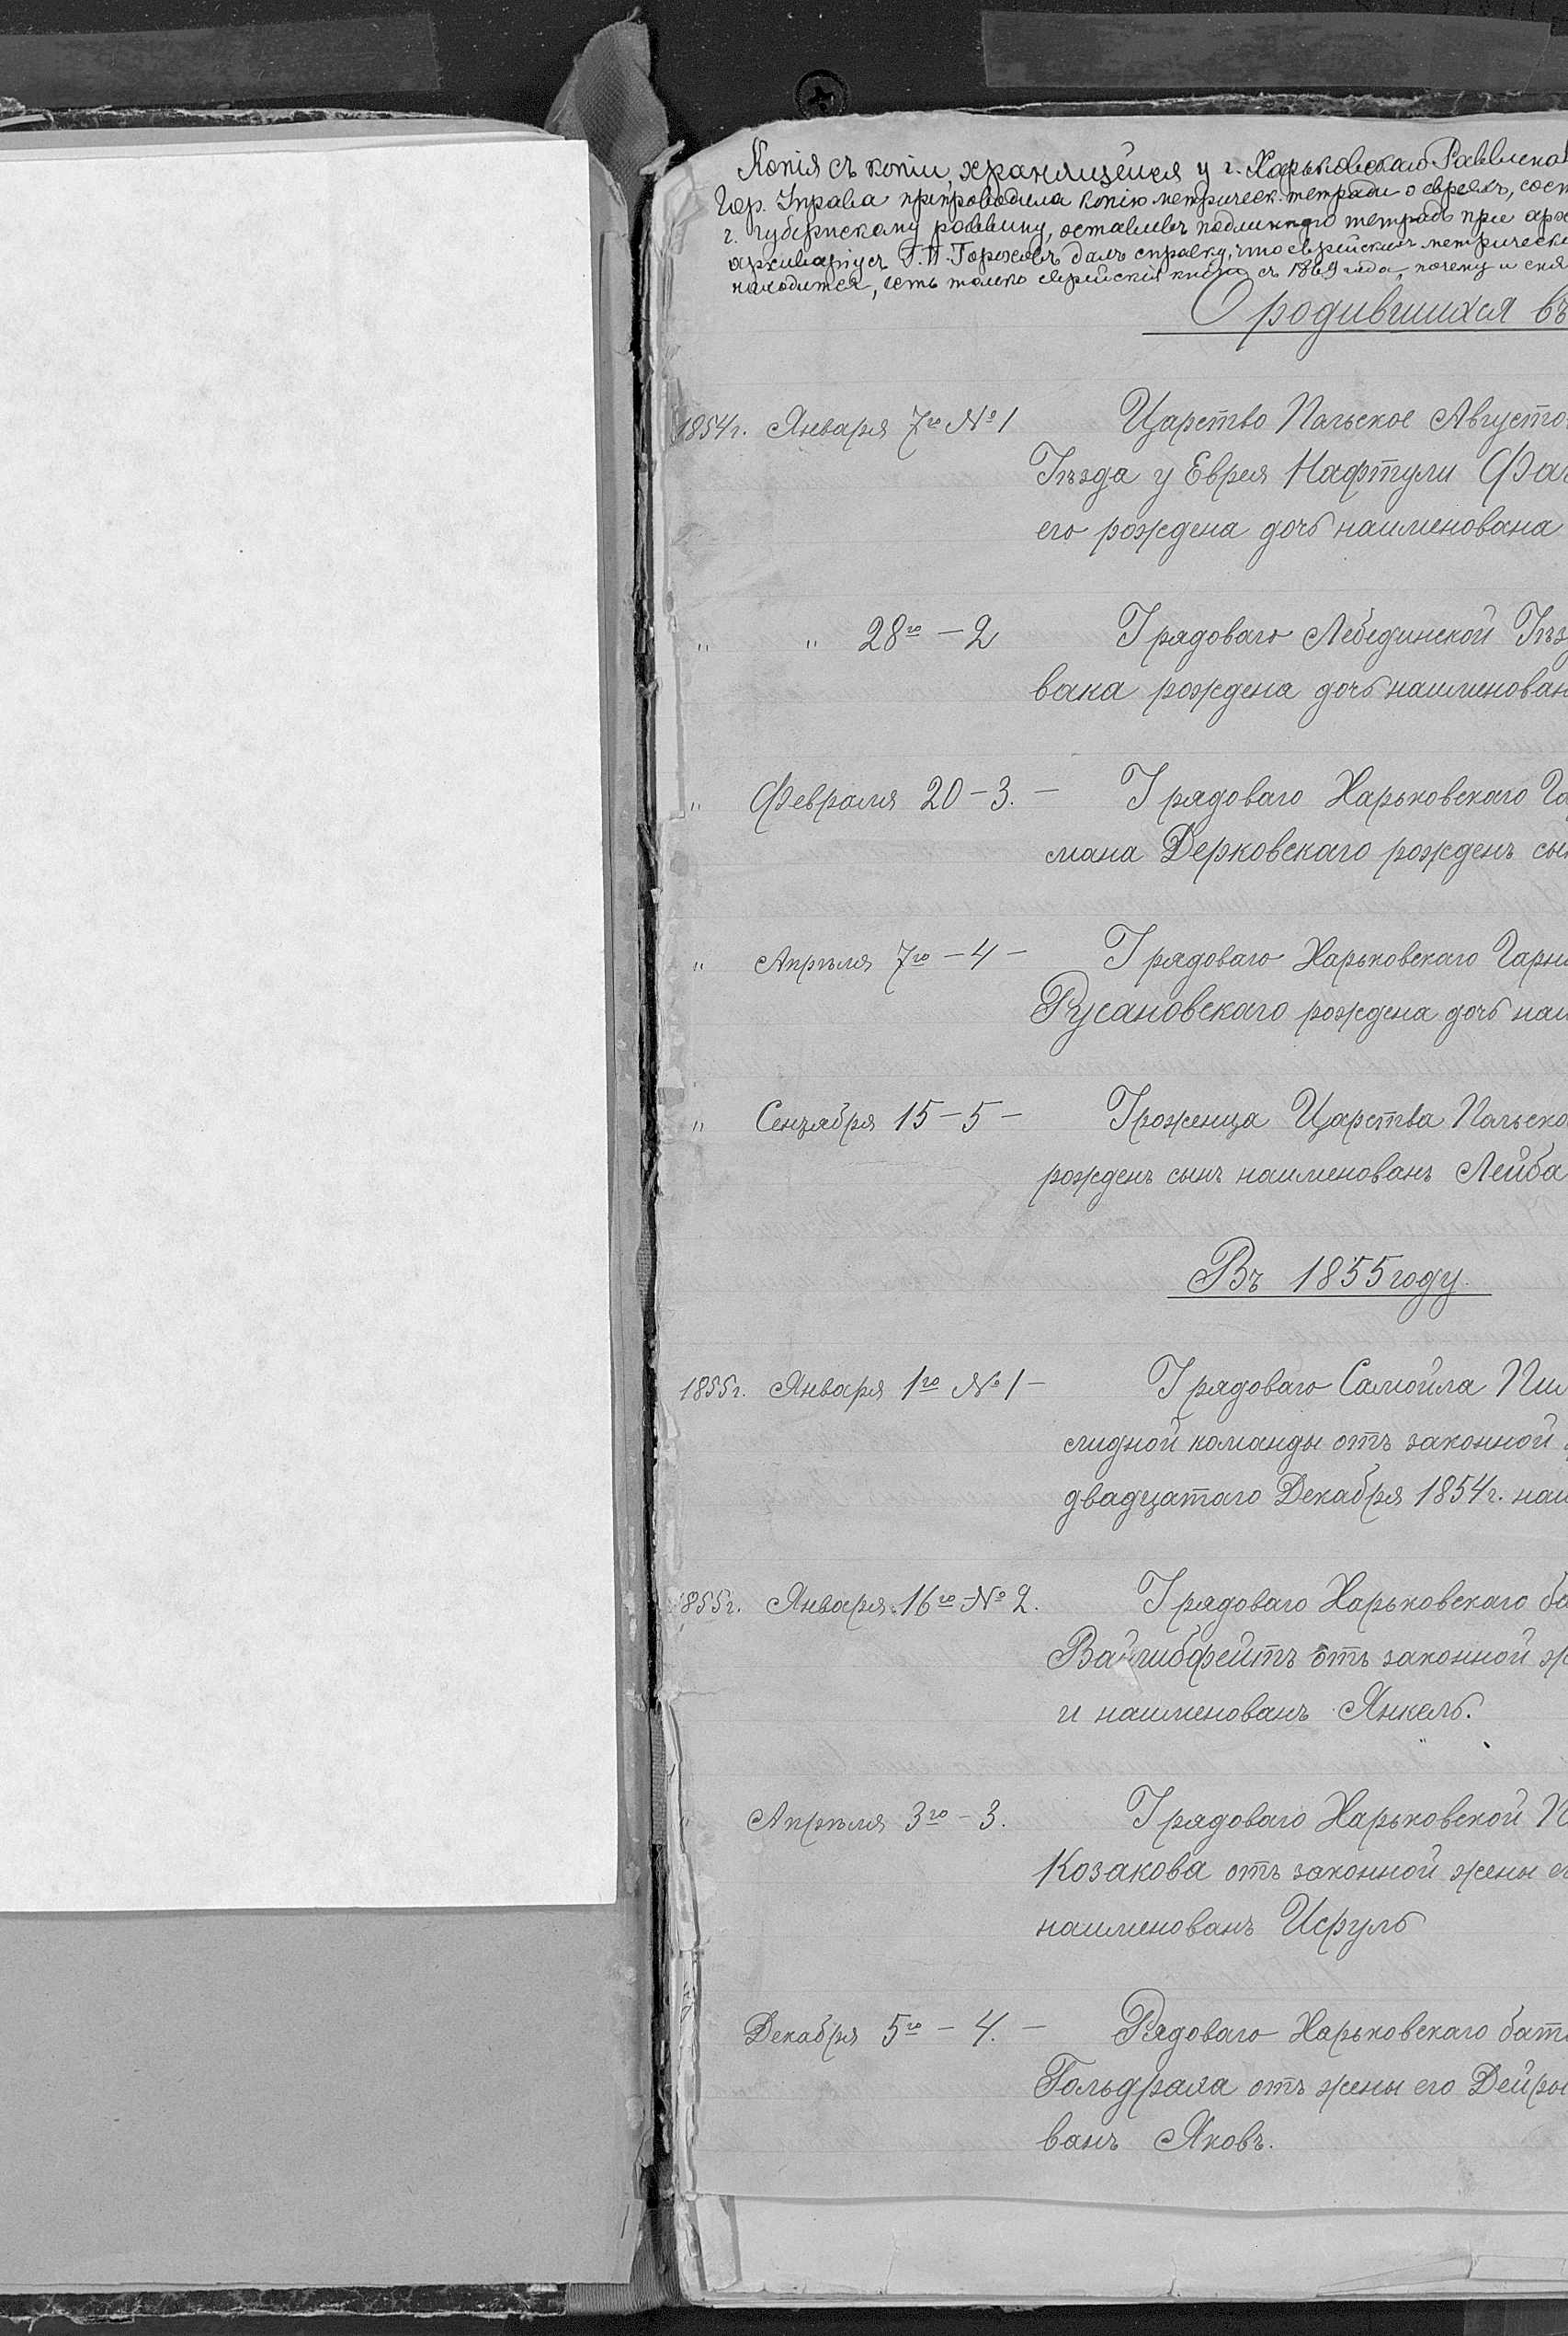 Копія съ копіи, хранящейся у г. Харьковскаго Раввина
Гор. Управа препроводила копію метрическ. тетради о евреяхъ, сост
г. Губернскому раввину, оставивъ подлинную тетрадь при арх
архиваріусъ далъ справку, что еврейскихъ метрически
находится, есть только еврейскія книги съ 1869 года, почему и сня
О родившихся въ
1854г. Января 7го №1 Царство Польское Августо
Уѣзда у Еврея Нафтули
его рождена дочь наименована
" " 28го – 2 У рядоваго Лебединской Уѣз
вака рождена дочь наименован
" Февраля 20 – 3. – У рядоваго Харьковскаго Га
мана Дерковскаго рожденъ сы
" Апрѣля 7го – 4 – У рядоваго Харьковскаго Гарни
Русановскаго рождена дочь наи
" Сентября 15 – 5 – Уроженца Царства Польско
рожденъ сынъ наименованъ Лейба
Въ 1855 году.
1855г. Января 1го №1 – У рядоваго Самойла
лидной команды отъ законной
двадцатаго Декабря 1854г. наи
1855г. Января 16го №2. У рядоваго Харьковскаго ба
отъ законной ж
и наименованъ Янкель.
" Апрѣля 3го – 3. У рядоваго Харьковской
Козакова отъ законной жены е
наименованъ Исруль
Декабря 5го – 4. – Рядоваго Харьковскаго бата
отъ жены его
ванъ Яковъ.